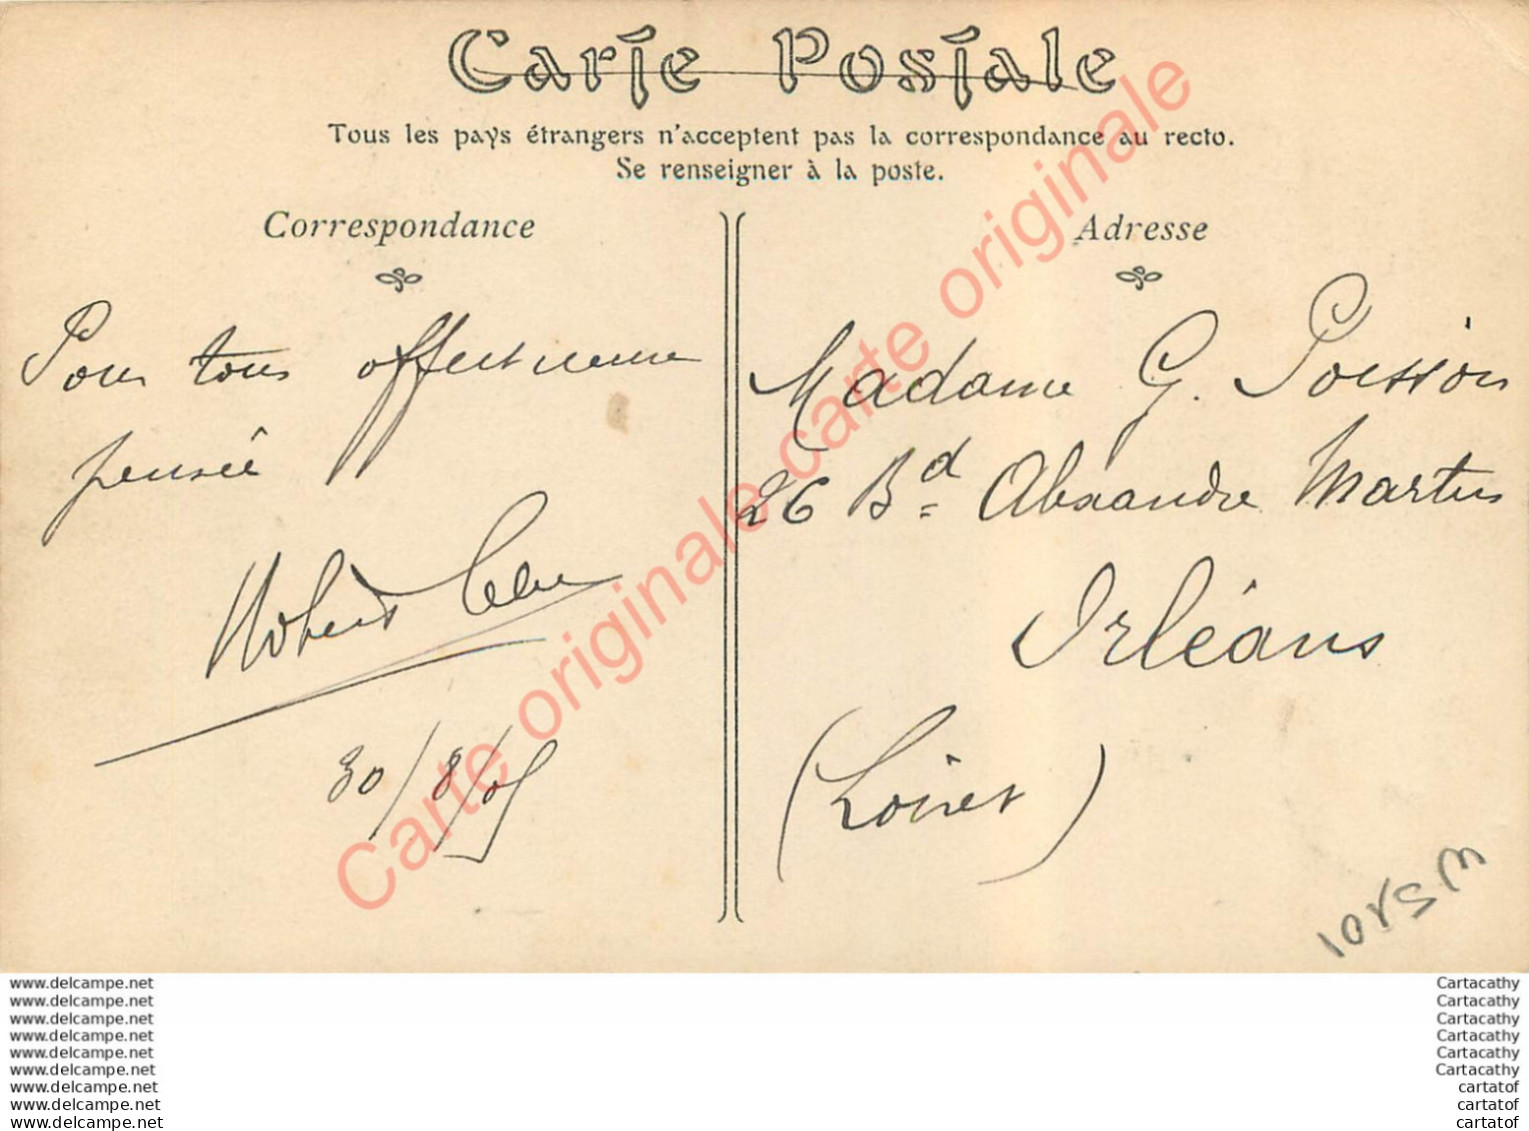 Carte Postale
Tous les pays étrangers n'acceptent pas la correspondance au recto.
Se renseigner à la poste.
Correspondance
Pour tous affectueuse
pensée
Robert
30/8/05
Adresse
Madame G. Poisson
26 Bd Alexandre Martin
Orléans
(Loiret)
Carte originale carte originale carte originale
www.delcampe.net
www.delcampe.net
www.delcampe.net
www.delcampe.net
www.delcampe.net
www.delcampe.net
www.delcampe.net
www.delcampe.net
www.delcampe.net
Cartacathy
Cartacathy
Cartacathy
Cartacathy
Cartacathy
Cartacathy
cartatof
cartatof
cartatof